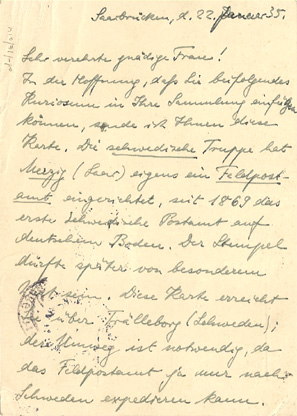 Saarbrücken, d. 22. Januar 35.
Sehr verehrte gnädige Frau!
In der Hoffnung, daß Sie beifolgendes
Kuriosum in Ihre Sammlung einfügen
können, sende ich Ihnen diese
Karte. Die schwedische Truppe hat
Merzig (Saar) eigens ein Feldpost-
amt eingerichtet, seit 1869 das
erste schwedische Postamt auf
deutschem Boden. Der Stempel
dürfte später von besonderem
sein. Diese Karte erreicht
über Trälleborg (Schweden);
der Umweg ist notwendig, da
das Feldpostamt ja nur nach
Schweden expedieren kann.